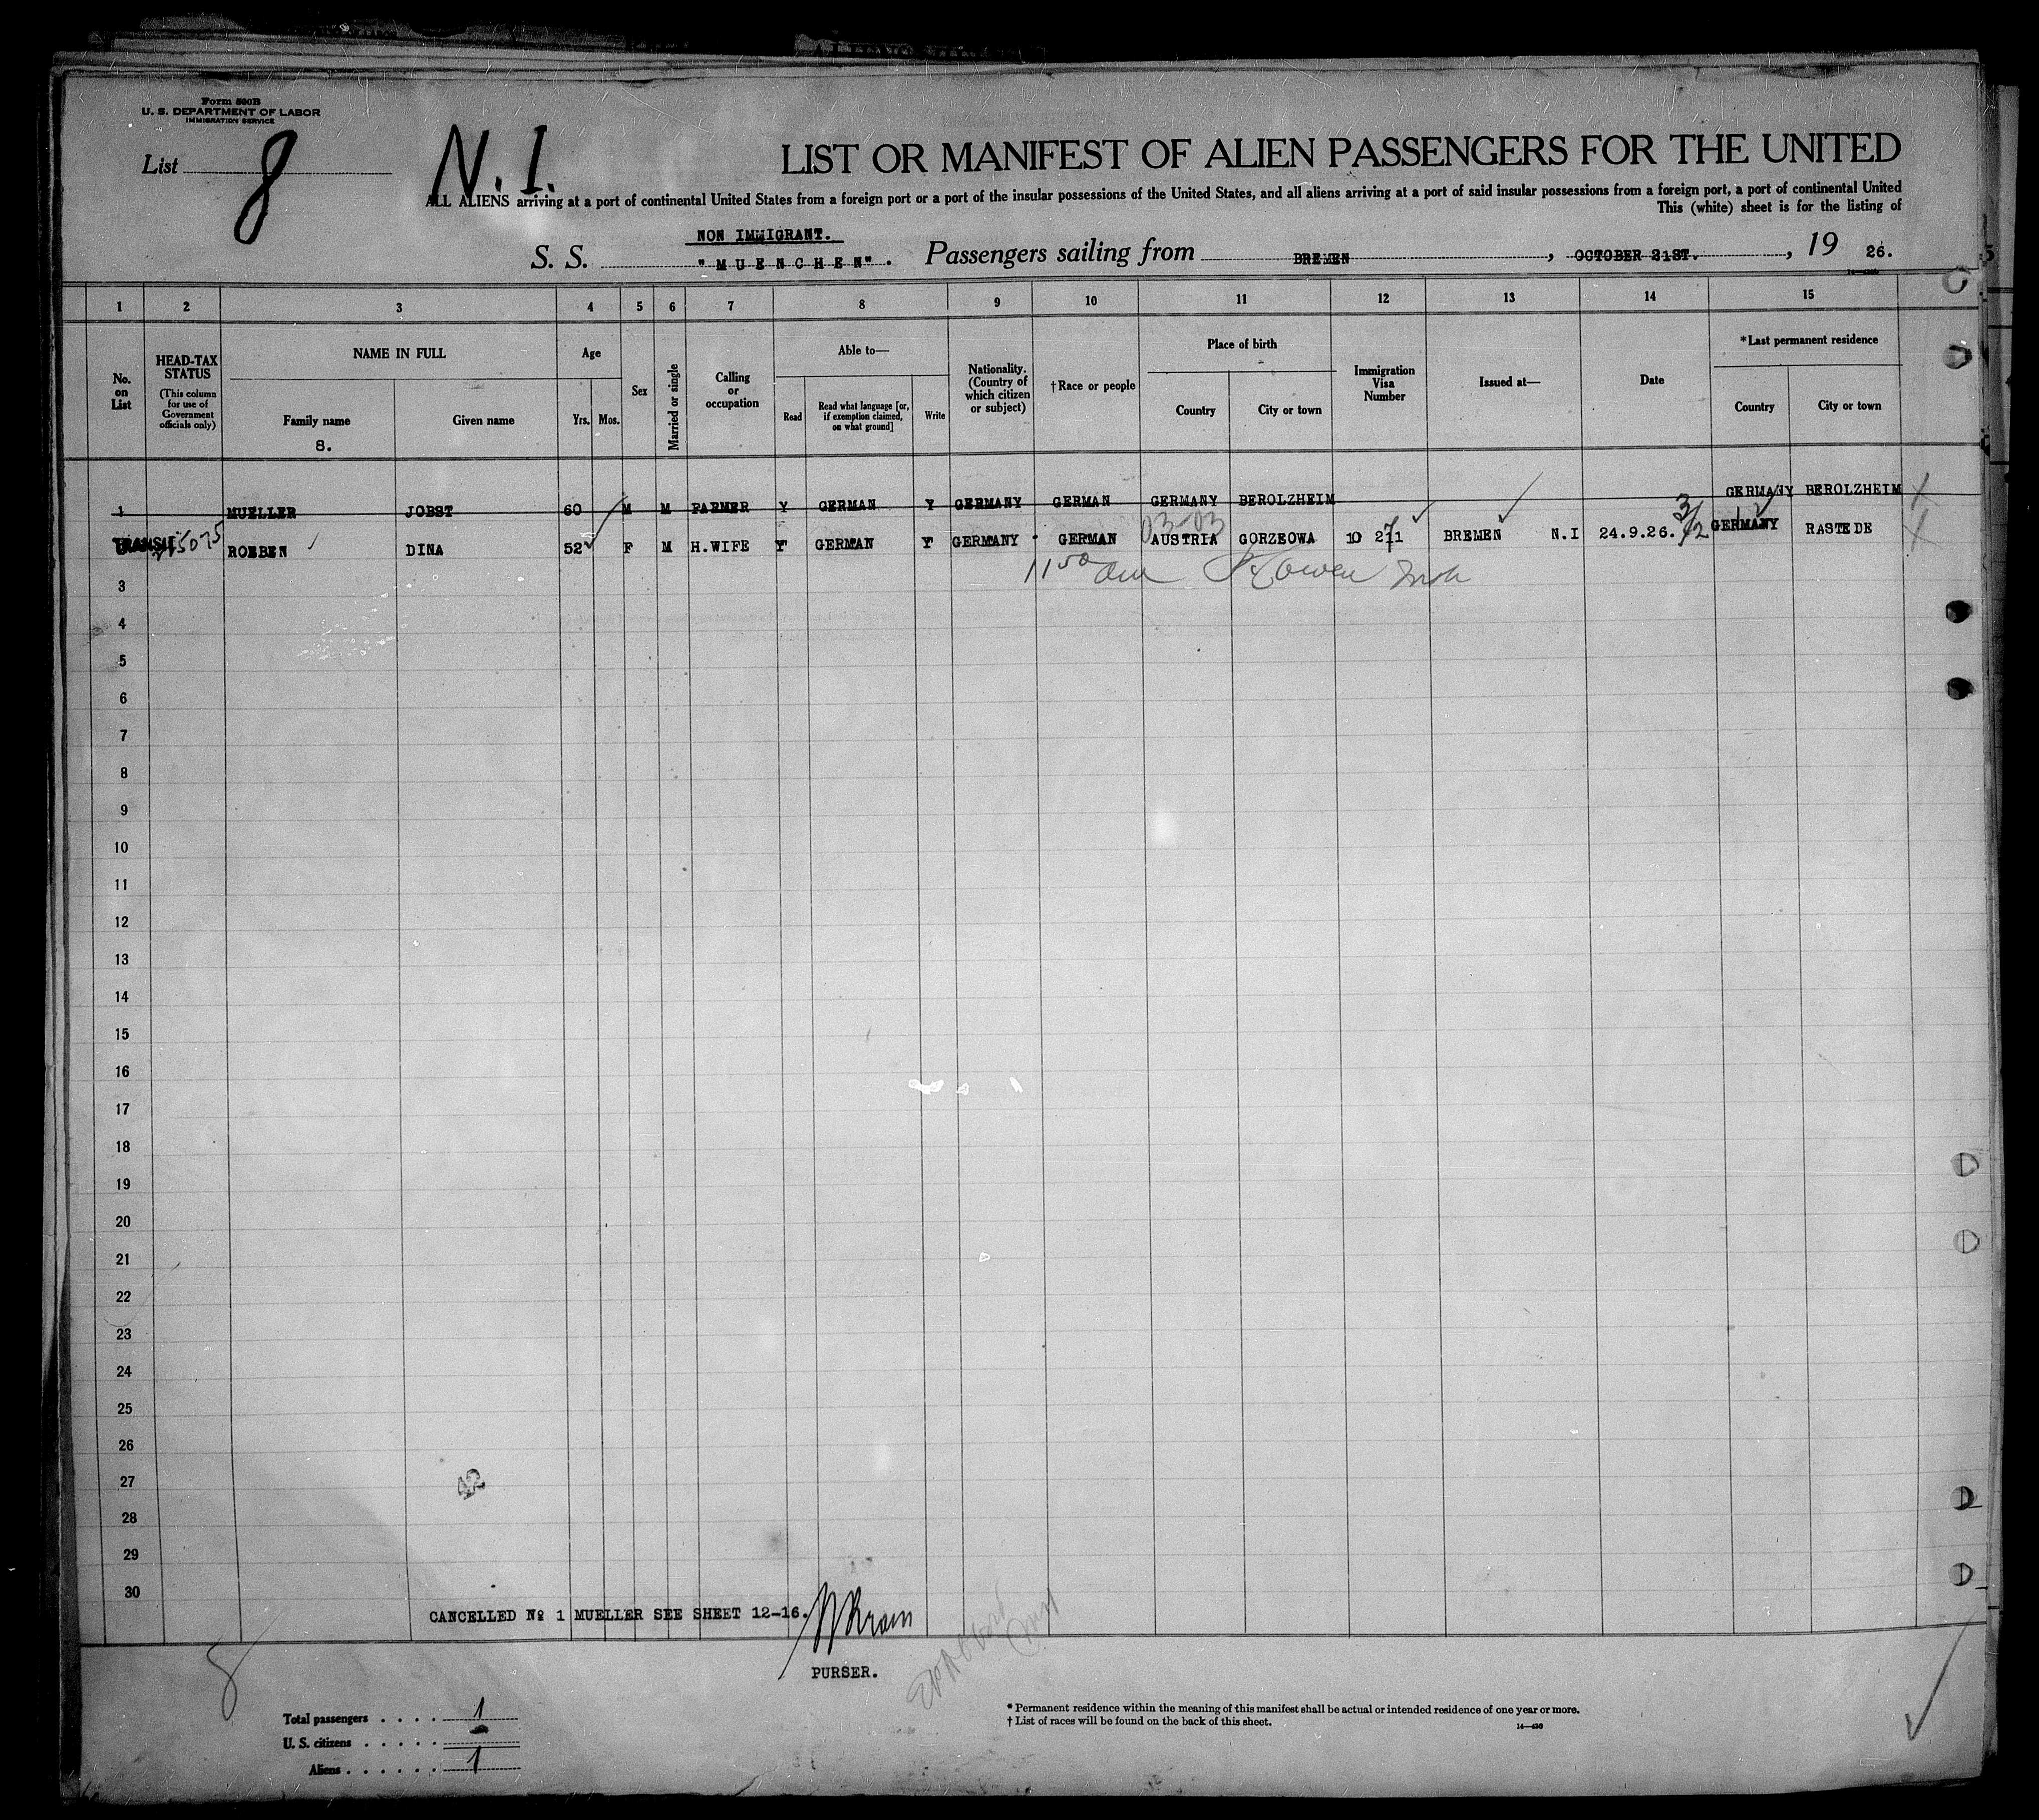 Form 500B
U. S. DEPARTMENT OF LABOR
IMMIGRATION SERVICE
List 8
N. I.
LIST OR MANIFEST OF ALIEN PASSENGERS FOR THE UNITED
ALL ALIENS arriving at a port of continental United States from a foreign port or a port of the insular possessions of the United States, and all aliens arriving at a port of said insular possessions from a foreign port, a port of continental United
This (white) sheet is for the listing of
NON IMMIGRANT.
S. S. "MUENCHEN". Passengers sailing from BREMEN, OCTOBER 21ST., 1926.
1 2 3 4 5 6 7 8 9 10 11 12 13 14 15
No. on List
HEAD-TAX STATUS
(This column for use of Government officials only)
NAME IN FULL
Family name
8.
Given name
Age
Yrs. Mos.
Sex
Married or single
Calling or occupation
Able to—
Read
Read what language [or, if exemption claimed, on what ground]
Write
Nationality. (Country of which citizen or subject)
†Race or people
Place of birth
Country
City or town
Immigration Visa Number
Issued at—
Date
*Last permanent residence
Country
City or town
1 MUELLER JOBST 60 M M FARMER Y GERMAN Y GERMANY GERMAN GERMANY BEROLZHEIM GERMANY BEROLZHEIM
03-03
TRANSIT ROEBEN DINA 52 F M H.WIFE Y GERMAN Y GERMANY GERMAN AUSTRIA GORZEOWA 10 271 BREMEN N.I 24.9.26. 3/2 GERMANY RASTEDE
11 50 am
3
4
5
6
7
8
9
10
11
12
13
14
15
16
17
18
19
20
21
22
23
24
25
26
27
42
28
29
30
CANCELLED No 1 MUELLER SEE SHEET 12-16.
PURSER.
8
Total passengers . . . . 1
U. S. citizens . . . . . -
Aliens . . . . . . 1
* Permanent residence within the meaning of this manifest shall be actual or intended residence of one year or more.
† List of races will be found on the back of this sheet.
14—430